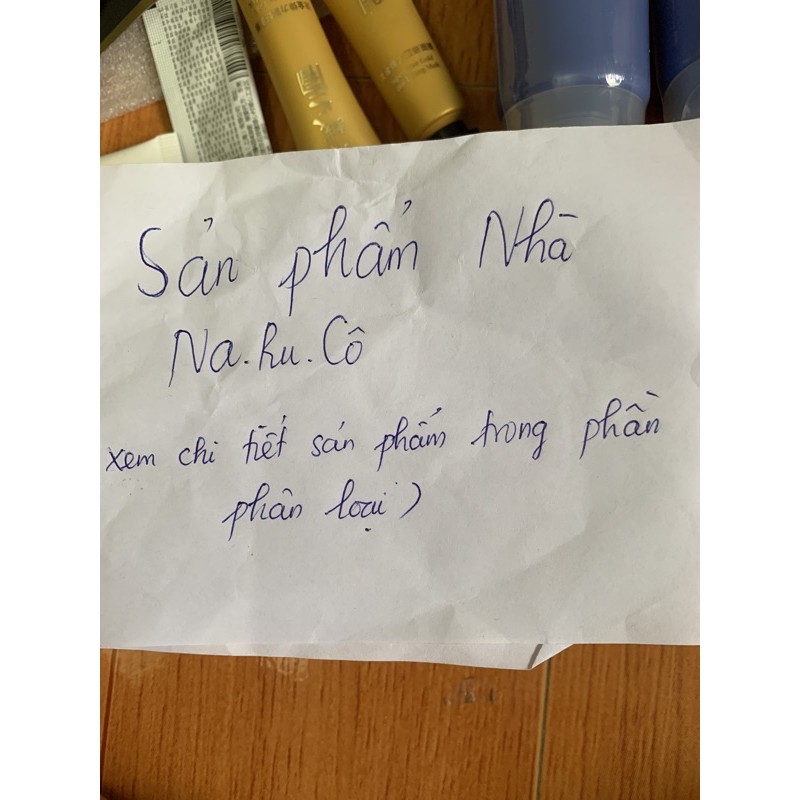 Sản phẩm Nhà
Na.hu.Cô
xem chi tiết sản phẩm trong phần
phân loại)